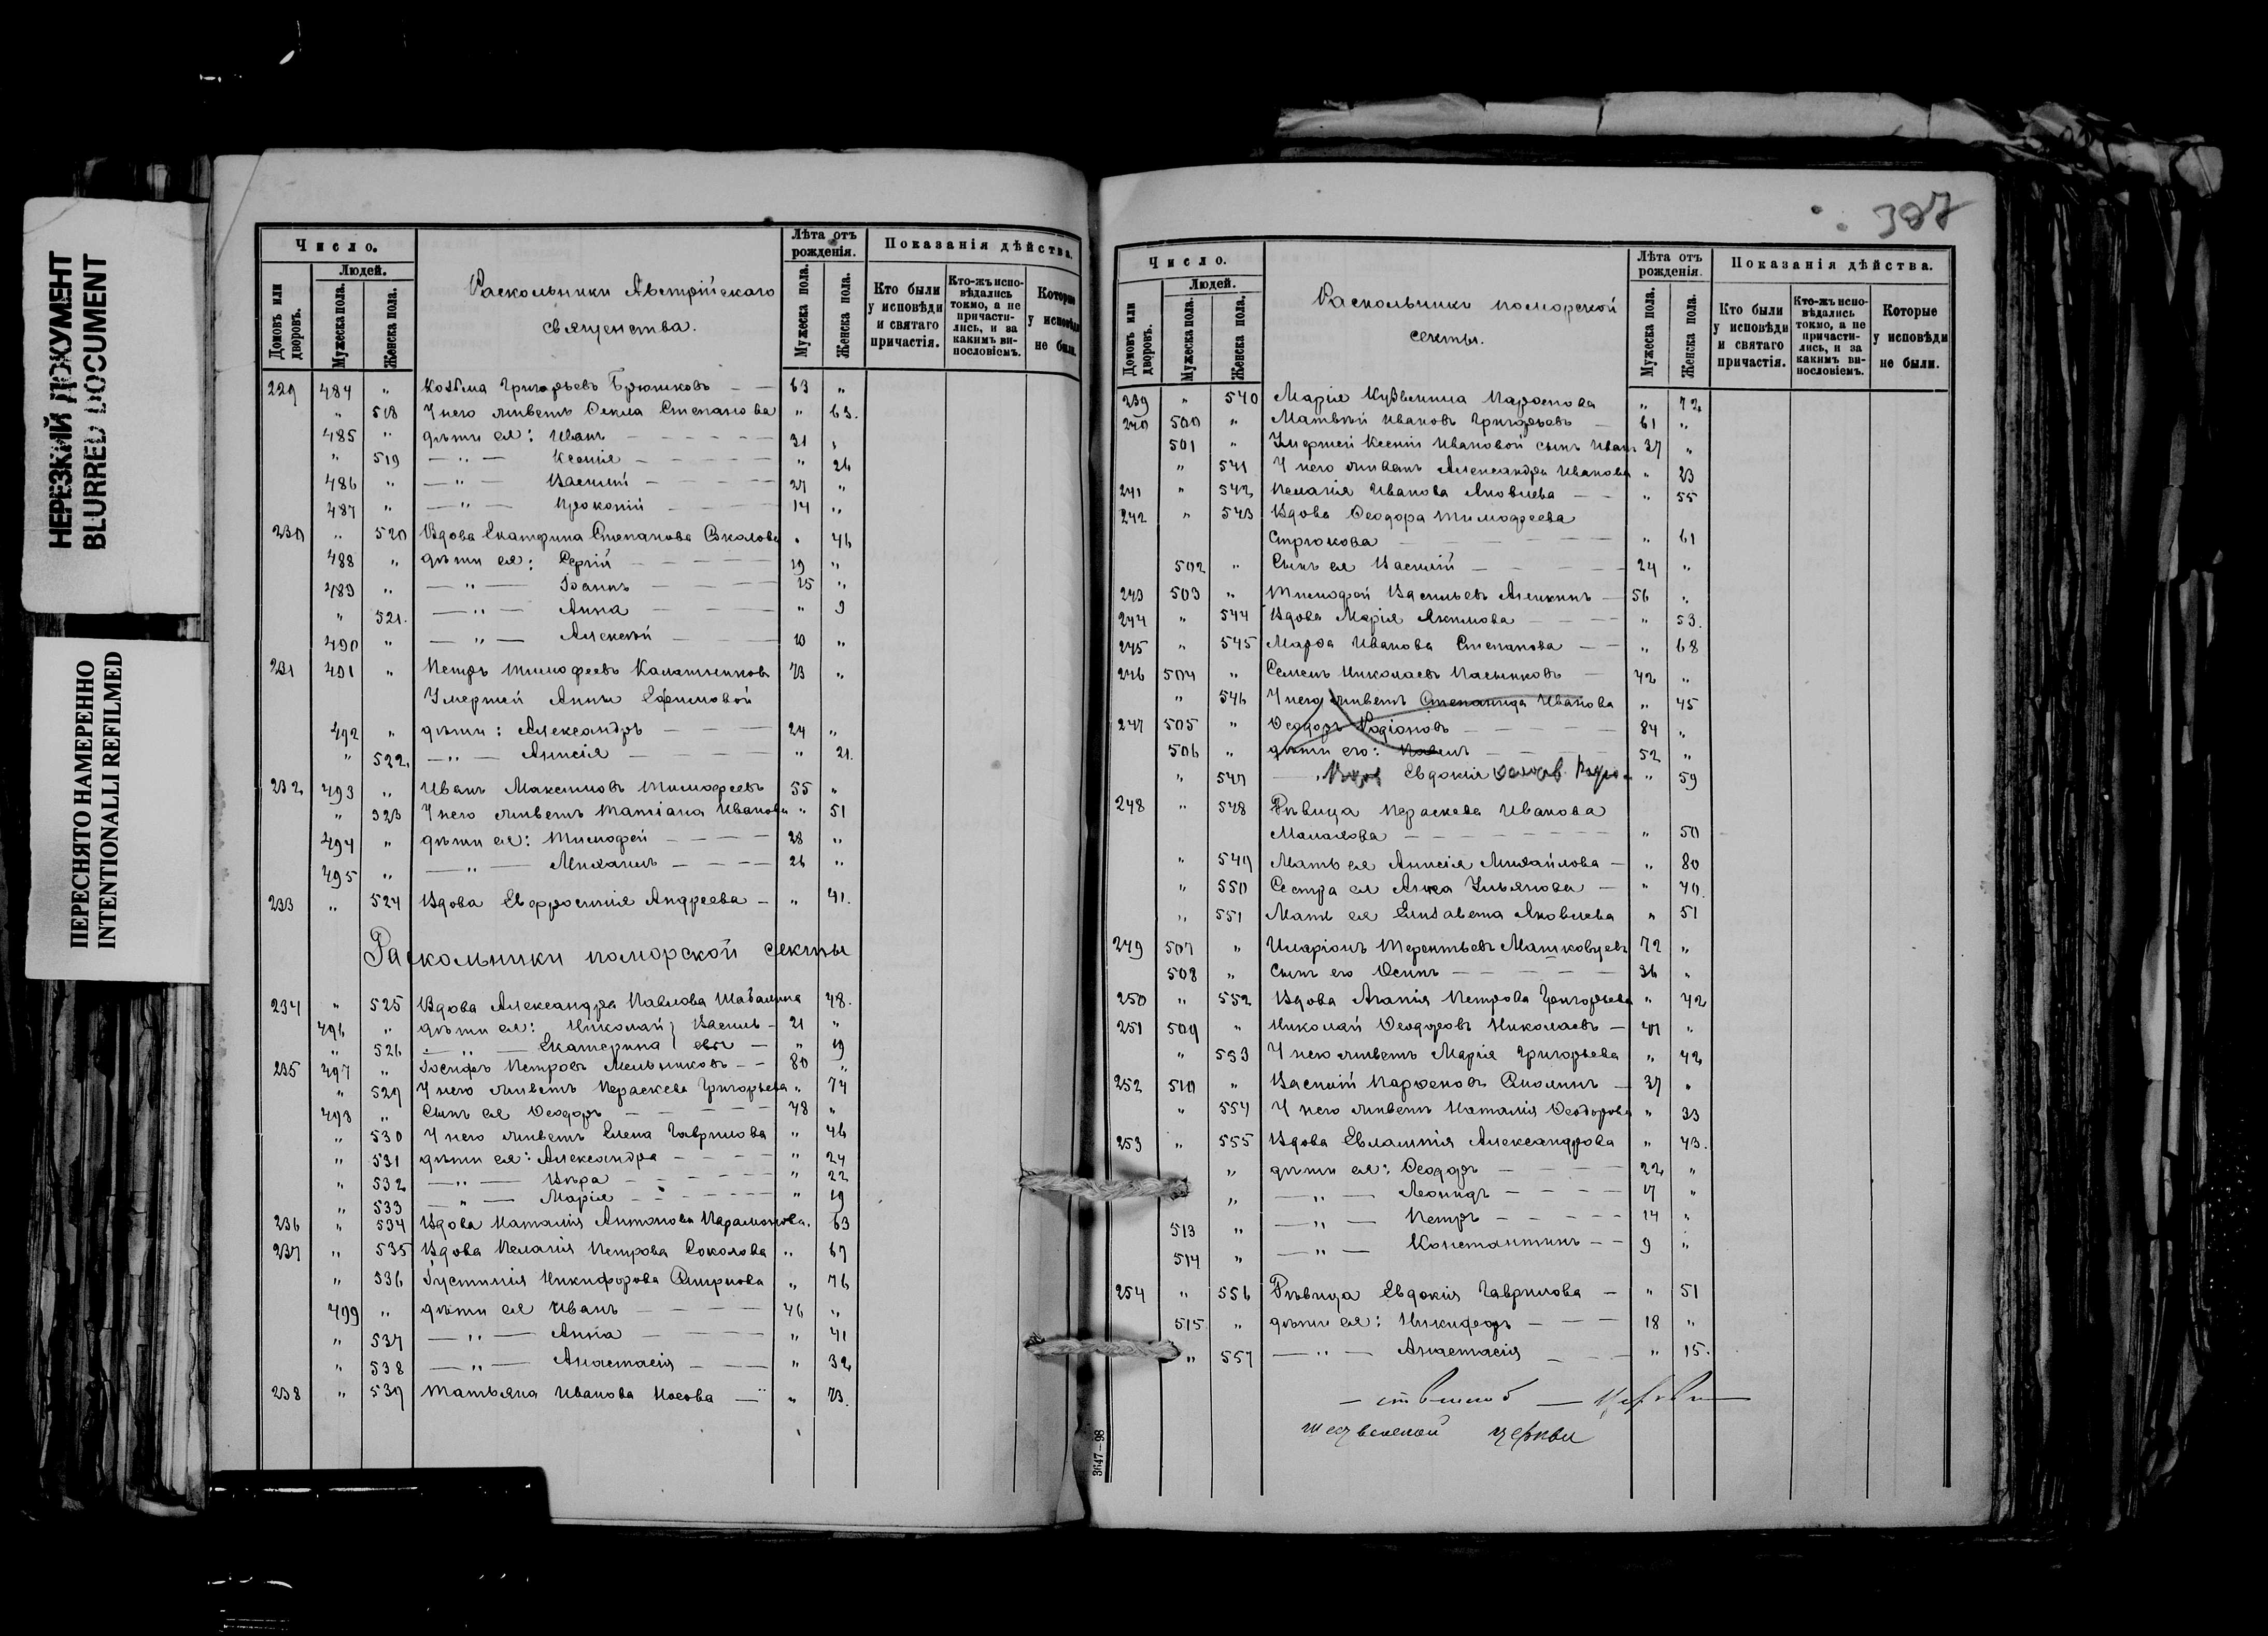 НЕРЕЗКИЙ ДОКУМЕНТ
BLURRED DOCUMENT
ПЕРЕСНЯТО НАМЕРЕННО
INTENTIONALLI REFILMED
Число.
Людей.
Домовъ или дворовъ.
Мужеска пола.
Женска пола.
Раскольники Австрійскаго
священства.
Лѣта отъ рожденія.
Мужеска пола.
Женска пола.
Показанія дѣйства.
Кто были у исповѣди и святаго причастія.
Кто-жъ исповѣдались токмо, а не причастились, и за какимъ винословіемъ.
Которые у исповѣди не были.
229 484 „ Козьма Григорьевъ Брюшковъ — — 63 „
„ 518 У него живетъ Ѳекла Степанова „ 63.
485 „ дѣти ея: Иванъ — — — 31 „
„ 519 — „ — Ксенія — — — „ 26
486 „ — „ — Василій — — — 27 „
487 „ — „ — Прокопій — — — 14 „
230 „ 520 Вдова Екатерина Степанова „ 46
488 „ дѣти ея: Сергій — — — 19 „
489 „ — „ — Іоаннъ — — — 15 „
„ 521. — „ — Анна — — — „ 9
490 „ — „ — Алексѣй — — — 10 „
231 491 „ Петръ Тимофеевъ Калашниковъ 73 „
Умершей Анны Ефимовой
492 „ дѣти: Александръ — — — 24 „
„ 522. — „ — Анисія — „ 21.
232 493 „ Иванъ Максимовъ Тимофеевъ 55 „
„ 323 У него живетъ Татіана Иванова „ 51
494 „ дѣти ея: Тимофей — — — 28 „
495 „ — „ — Михаилъ — — — 26 „
233 „ 524 Вдова Евфросинія Андреева — „ 41.
Раскольники поморской секты
234 „ 525 Вдова Александра Павлова Шабалина 48.
496 „ дѣти ея: Николай } Василь- 21 „
„ 526 — „ — Екатерина } евы — „ 19
235 497 „ Іосифъ Петровъ Мельниковъ — — 80 „
„ 529 У него живетъ Параскева Григорьева „ 74
498 „ Сынъ ея Ѳеодоръ — — — 48 „
„ 530 У него живетъ Елена Гаврилова „ 46
„ 531 дѣти ея: Александра — — — „ 24
„ 532 — „ — Вѣра — — — „ 22
„ 533 — „ — Марія — — — „ 19
236 „ 534 Вдова Наталія Антонова Парамонова. 63
237 „ 535 Вдова Пелагія Петрова Соколова „ 67
„ 536 Іустинія Никифорова Смирнова „ 76
499 „ дѣти ея Иванъ — — — 46 „
„ 537 — „ — Анна — — — „ 41
„ 538 — „ — Анастасія — — — „ 32
238 „ 539 Татьяна Иванова Носова — „ 73.
307
Число.
Людей.
Домовъ или дворовъ.
Мужеска пола.
Женска пола.
Раскольники поморской
секты.
Лѣта отъ рожденія.
Мужеска пола.
Женска пола.
Показанія дѣйства.
Кто были у исповѣди и святаго причастія.
Кто-жъ исповѣдались токмо, а не причастились, и за какимъ винословіемъ.
Которые у исповѣди не были.
239 „ 540 Марія Кузьмина Парѳенова „ 72
240 500 „ Матвѣй Ивановъ Григорьевъ — 61 „
501 „ Умершей Ксеніи Ивановой сынъ Иванъ 37 „
„ 541 У него живетъ Александра Иванова „ 23
241 „ 542 Пелагія Иванова Яковлева — — „ 55
242 „ 543 Вдова Ѳеодора Тимофеева
Стрюкова — — — „ 61
502 „ Сынъ ея Василій — — — 24 „
243 503 „ Тимофей Васильевъ Алешкинъ — 56 „
244 „ 544 Вдова Марія Акимова — — — „ 53.
245 „ 545 Марѳа Иванова Степанова — — „ 68
246 504 „ Семенъ Николаевъ Пасынковъ — 42 „
„ 546 У него живетъ Степанида Иванова „ 45
247 505 „ Ѳеодоръ Родіоновъ — — — 84 „
506 „ дѣти его: Павелъ — — — 52 „
„ 547 — Евдокія „ 59
248 „ 548 Дѣвица Параскева Иванова
Малахова — — — „ 50
„ 549 Мать ея Анисія Михайлова — „ 80
„ 550 Сестра ея Анна Ульянова — „ 70.
„ 551 Мать ея Елизавета Яковлева „ 51
249 507 „ Иларіонъ Терентьевъ Машковцевъ 72 „
508 „ Сынъ его Осипъ — — — 36 „
250 „ 552 Вдова Агапія Петрова Григорьева „ 42
251 509 „ Николай Ѳеодоровъ Николаевъ — 41 „
„ 553 У него живетъ Марія Григорьева „ 42
252 510 „ Василій Парѳеновъ — 37 „
„ 554 У него живетъ Наталія Ѳеодорова „ 33
253 „ 555 Вдова Евлампія Александрова „ 43.
„ дѣти ея: Ѳеодоръ — — — 22 „
„ — „ — Леонидъ — — — 17 „
513 „ — „ — Петръ — — — 14 „
514 „ — „ — Константинъ — — 9 „
254 „ 556 Дѣвица Евдокія Гаврилова — „ 51
515 „ дѣти ея: Никифоръ — — — 18 „
„ 557 — „ — Анастасія — — — „ 15.
церкви
3647—98